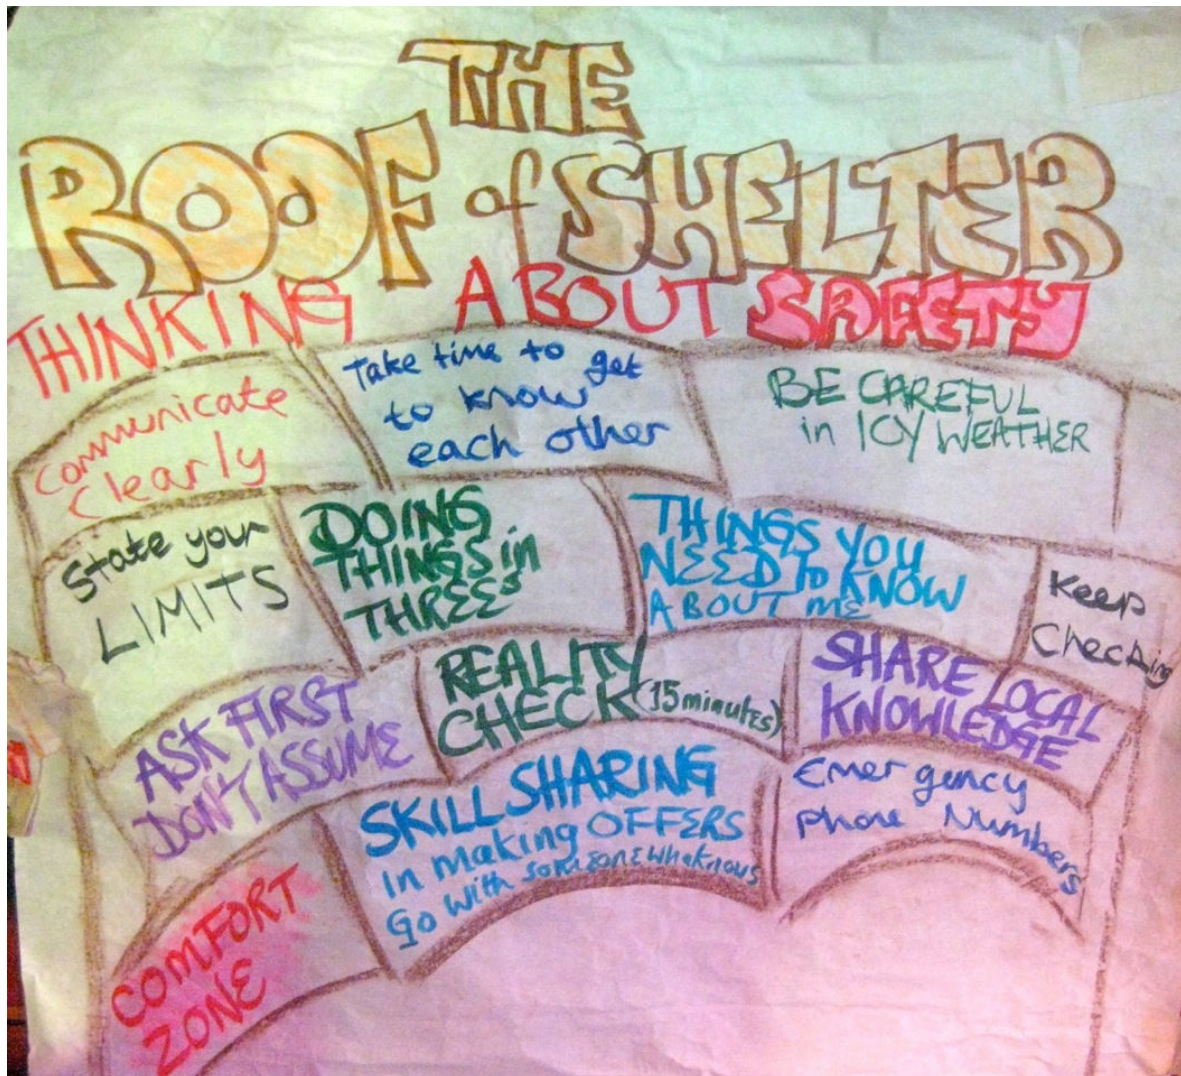 THE
ROOF of SHELTER
THINKING ABOUT SAFETY
Communicate
Clearly
Take time to get
to know
each other
BE CAREFUL
in ICY WEATHER
State your
LIMITS
DOING
THINGS in
THREES
THINGS YOU
NEED to KNOW
ABOUT ME
Keep
Checking
ASK FIRST
DON'T ASSUME
REALITY
CHECK (15 minutes)
SHARE LOCAL
KNOWLEDGE
COMFORT
ZONE
SKILL SHARING
In making OFFERS
Go with someone who knows
Emergency
phone Numbers